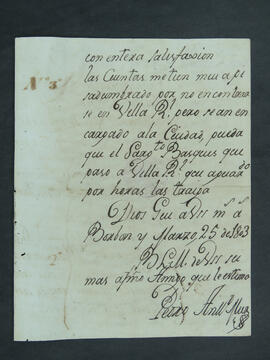 con entera satisfasion
las Cuentas me tien mui ape
sadumbrado por no encontrar
se en Villa Rl. pero se an en
cargado ala Ciudad, puida
que el Sargto Basques que
paso a Villa Rl. qe aguardo
por horas las traiga
Dios Gue a Vd ms as
Borbon y Marzo, 25 de 1803
B. L. M. de Vd su
mas apdo Amigo que le estima
Pedro Anto
No. 3